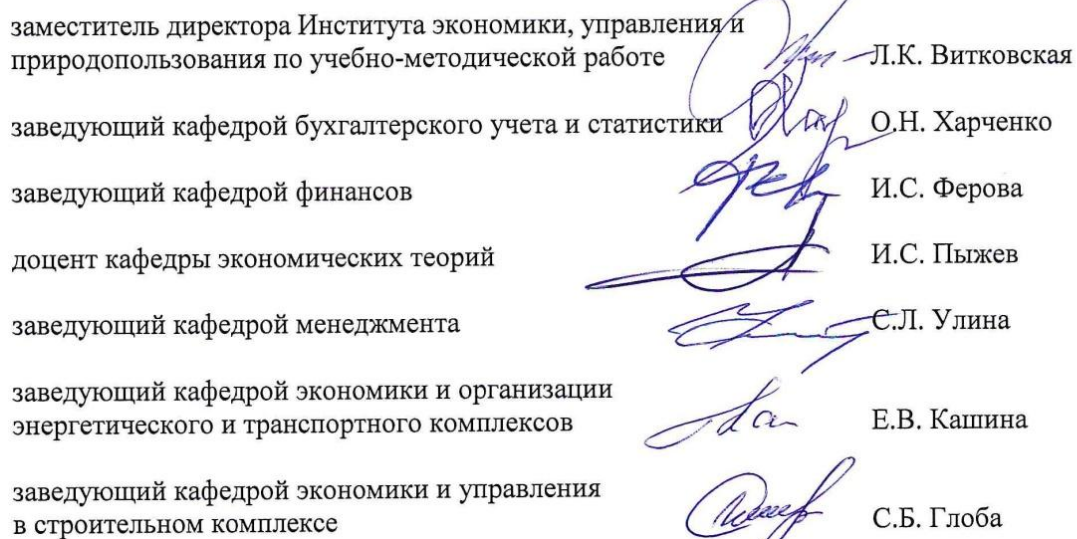 заместитель директора Института экономики, управления и
природопользования по учебно-методической работе Л.К. Витковская
заведующий кафедрой бухгалтерского учета и статистики О.Н. Харченко
заведующий кафедрой финансов И.С. Ферова
доцент кафедры экономических теорий И.С. Пыжев
заведующий кафедрой менеджмента С.Л. Улина
заведующий кафедрой экономики и организации
энергетического и транспортного комплексов Е.В. Кашина
заведующий кафедрой экономики и управления
в строительном комплексе С.Б. Глоба